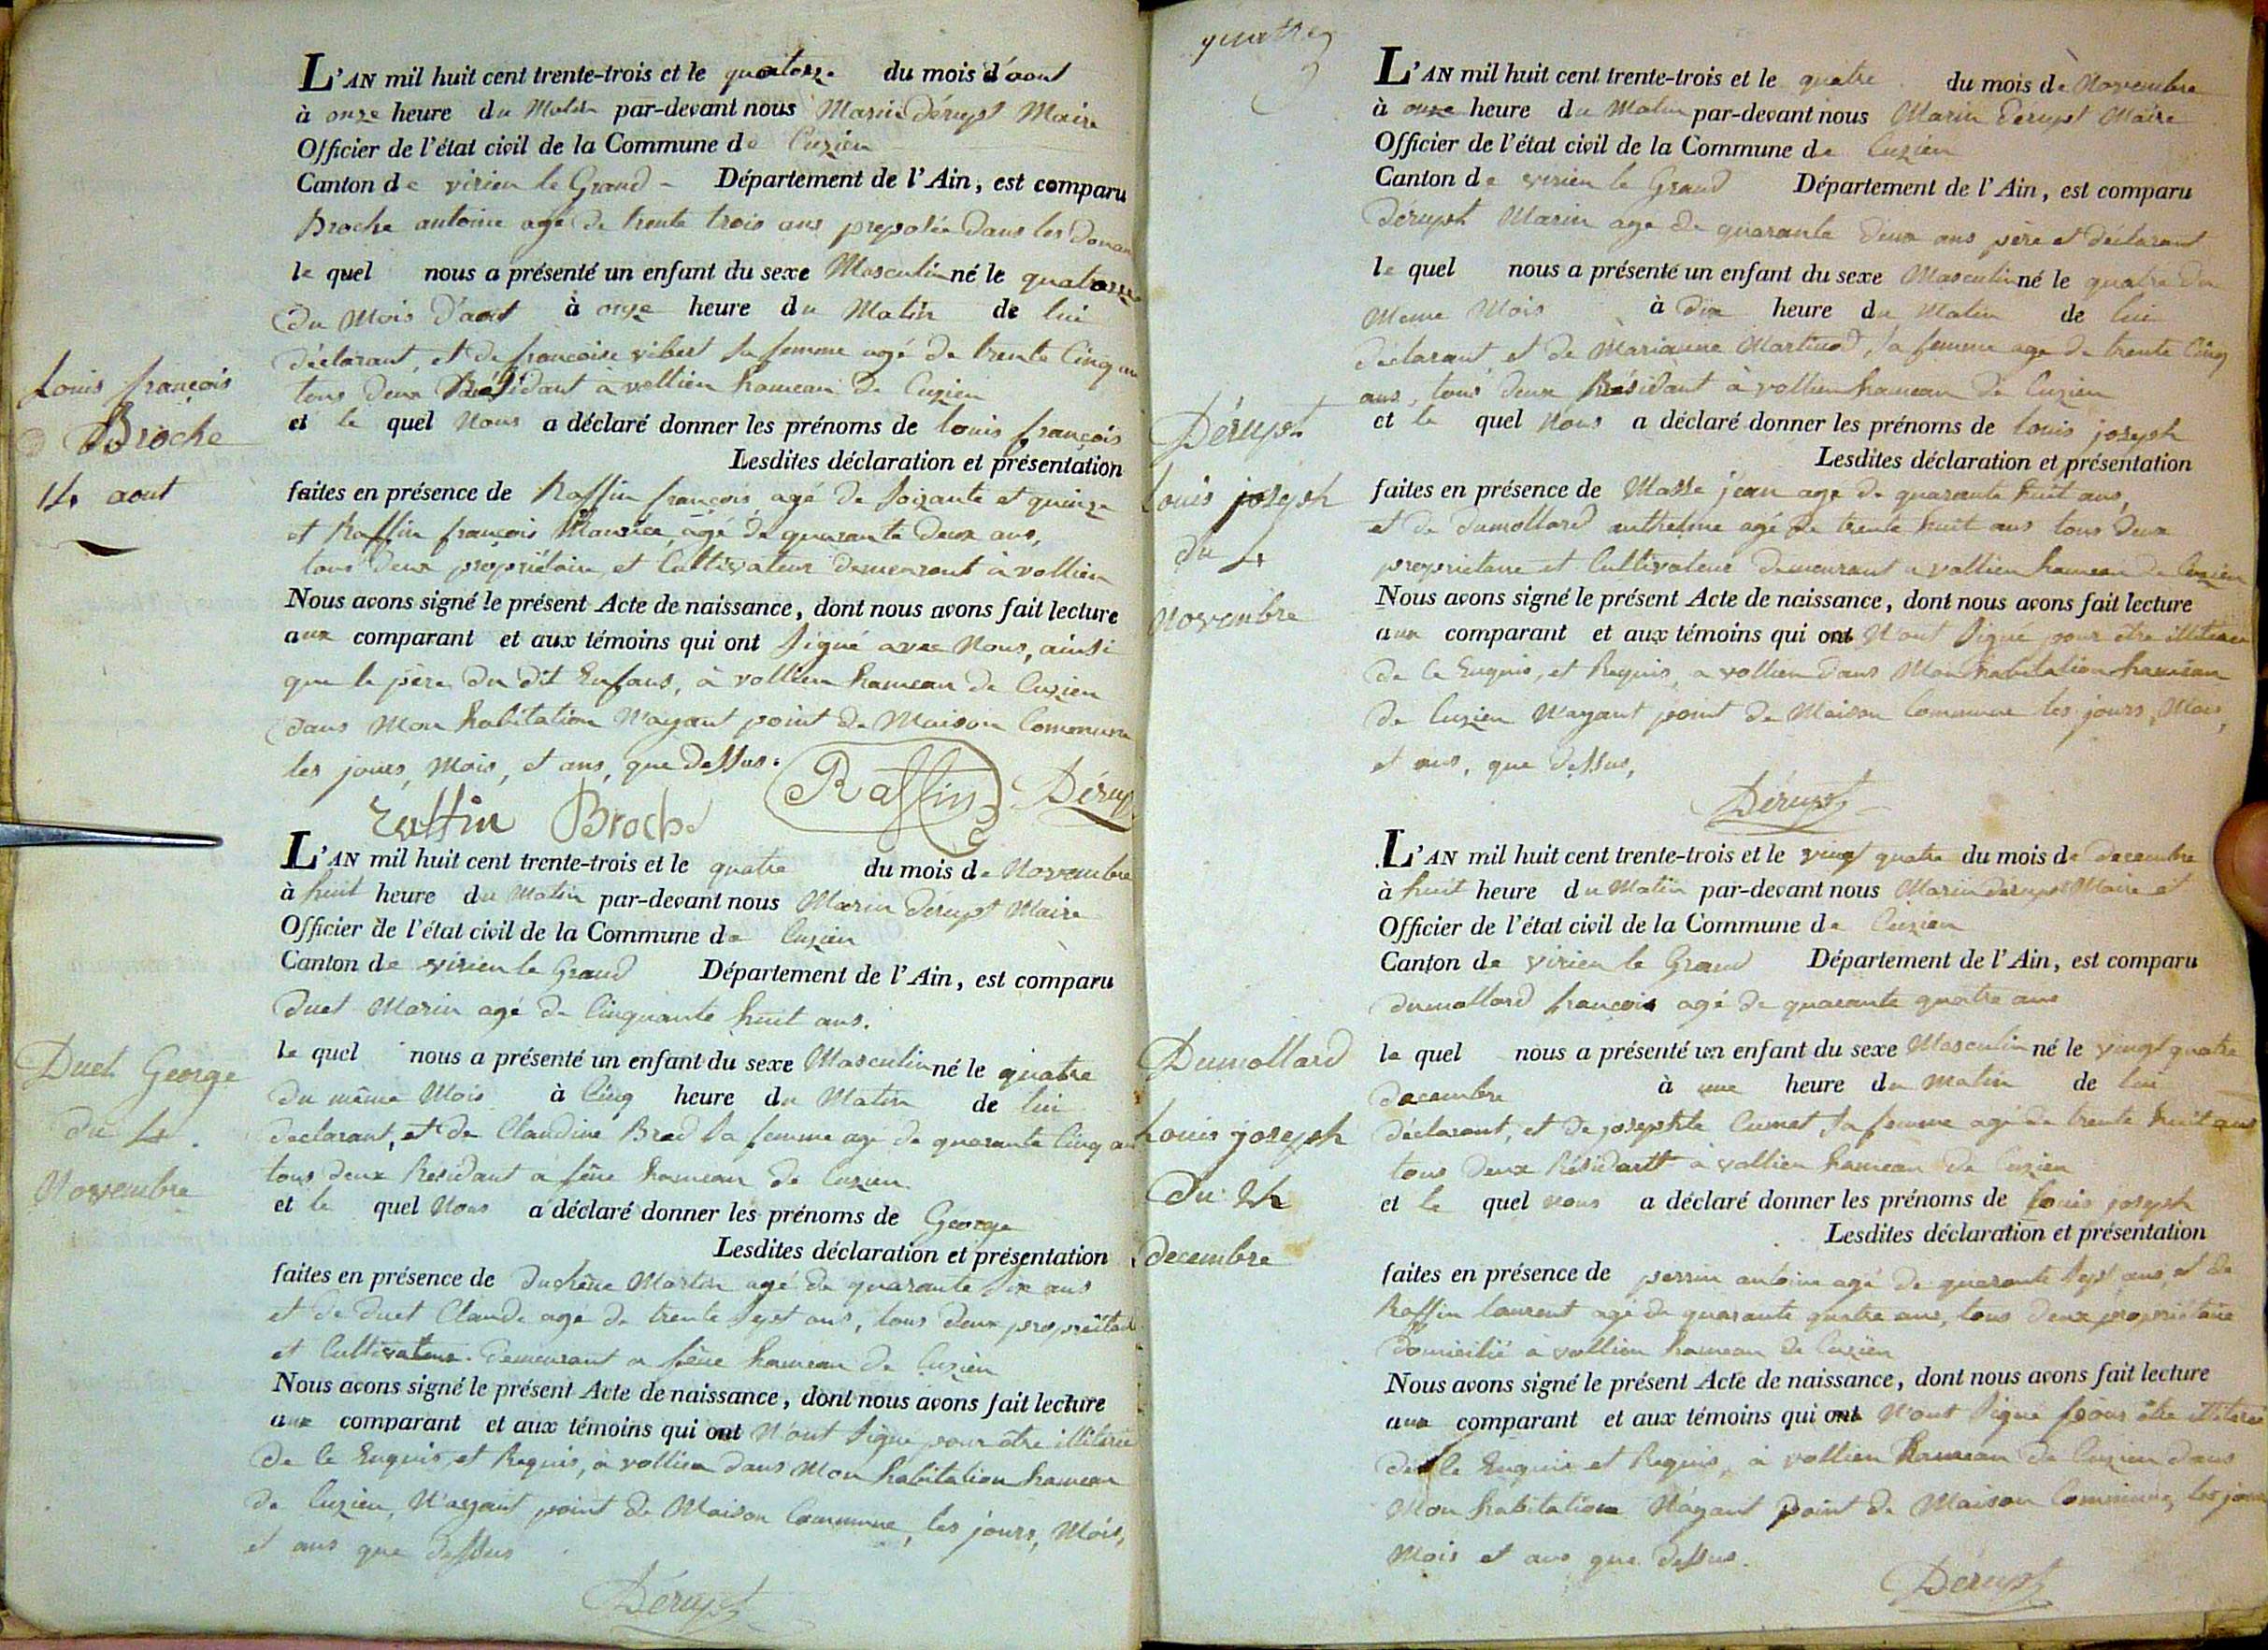 L'AN mil huit cent trente-trois et le quatorze du mois d'aout
à onze heure du Matin par-devant nous Marin Dérupt Maire
Officier de l'état civil de la Commune de Cuzieu
Canton de virieu le Grand - Département de l'Ain, est comparu
Broche antoine agé de trente trois ans preposée dans les Douan
le quel nous a présenté un enfant du sexe Masculin né le quatorze
du Mois d'aout à onze heure du Matin de lui
déclarant, et de francoise vibert sa femme agé de trente Cinq an
tous deux Résidant à vollien hameau de Cuzieu
et le quel Nous a déclaré donner les prénoms de louis françois
Lesdites déclaration et présentation
faites en présence de Raffin françois agé de soixante et quinze
et Raffin françois Maurice, agé de quarante deux ans,
tous deux propriétaire, et Cultivateur demeurant à vollien
Nous avons signé le présent Acte de naissance, dont nous avons fait lecture
aux comparant et aux témoins qui ont signé avec Nous, ainsi
que le père du dit Enfans, à vollien hameau de Cuzieu
dans Mon habitation N'ayant point de Maison Commune
les jours, Mois, et ans, que dessus.
Raffin Dérup
raffin Broche
Louis françois
Broche
14 aout
L'AN mil huit cent trente-trois et le quatre du mois de Novembre
à huit heure du Matin par-devant nous Marin Dérupt Maire
Officier de l'état civil de la Commune de Cuzieu
Canton de virieu le Grand Département de l'Ain, est comparu
Duet Marin agé de Cinquante huit ans.
le quel nous a présenté un enfant du sexe Masculin né le quatre
du même Mois à Cinq heure du Matin de lui
declarant, et de Claudine Bred sa femme age de quarante Cinq an
tous deux Résidant a hameau de Cuzieu
et le quel Nous a déclaré donner les prénoms de George
Lesdites déclaration et présentation
faites en présence de duchêne Martin agé de quarante six ans
et de duet Claude agé de trente sept ans, tous deux propriétai
et Cultivateur demeurant a hameau de Cuzieu
Nous avons signé le présent Acte de naissance, dont nous avons fait lecture
aux comparant et aux témoins qui ont N'ont signe pour être illiteré
de le Enquis, et Requis, à vollien dans Mon habitation hameau
de Cuzieu, N'ayant point de Maison Commune, les jours, Mois,
et ans que dessus
Dérupt
Duet George
du 4.
Novembre
quatre
L'AN mil huit cent trente-trois et le quatre du mois de Novembre
à onze heure du Matin par-devant nous Marin Dérupt Maire
Officier de l'état civil de la Commune de Cuzieu
Canton de virieu le Grand Département de l'Ain, est comparu
Dérupt Marin age de quarante deux ans père et déclarant
le quel nous a présenté un enfant du sexe Masculin né le quatre du
Meme Mois à dix heure du Matin de lui
déclarant, et de Marianne Martinod, sa femme age de trente Cinq
ans, tous deux Résidant à vollien hameau de Cuzieu
et le quel Nous a déclaré donner les prénoms de louis joseph
Lesdites déclaration et présentation
faites en présence de Masse jean age de quarante huit ans,
et de dumollard anthelme agé de trente huit ans tous deux
proprietaire et Cultivateur demeurant a vollien hameau de Cuzieu
Nous avons signé le présent Acte de naissance, dont nous avons fait lecture
aux comparant et aux témoins qui ont N'ont signé pour être illiteré
de le Enquis, et Requis, a vollien dans Mon habitation hameau
de Cuzieu N'ayant point de Maison Commune les jours, Mois,
et ans, que dessus,
Dérupt
Dérupt
Louis joseph
du 4
Novembre
L'AN mil huit cent trente-trois et le vingt quatre du mois de decembre
à huit heure du Matin par-devant nous Marin dérupt Maire et
Officier de l'état civil de la Commune de Cuzieu
Canton de virieu le Grand Département de l'Ain, est comparu
dumollard françois agé de quarante quatre ans
le quel nous a présenté un enfant du sexe Masculin né le vingt quatre
decembre à une heure du matin de lui
déclarant, et de josephte Cumet, sa femme agé de trente huit ans
tous deux Résidant à vollien hameau de Cuzieu
et le quel nous a déclaré donner les prénoms de louis joseph
Lesdites déclaration et présentation
faites en présence de perrin antoine agé de quarante sept ans, et de
Raffin laurent agé de quarante quatre ans, tous deux propriétaire
domicilié à vollien hameau de Cuzieu
Nous avons signé le présent Acte de naissance, dont nous avons fait lecture
aux comparant et aux témoins qui ont N'ont signé pour être illiteré
de le Enquis et Requis, à vollien hameau de Cuzieu dans
Mon habitation N'ayant point de Maison Commune, les jou
Mois et ans que dessus.
Dérupt
Dumollard
Louis joseph
du 24
decembre